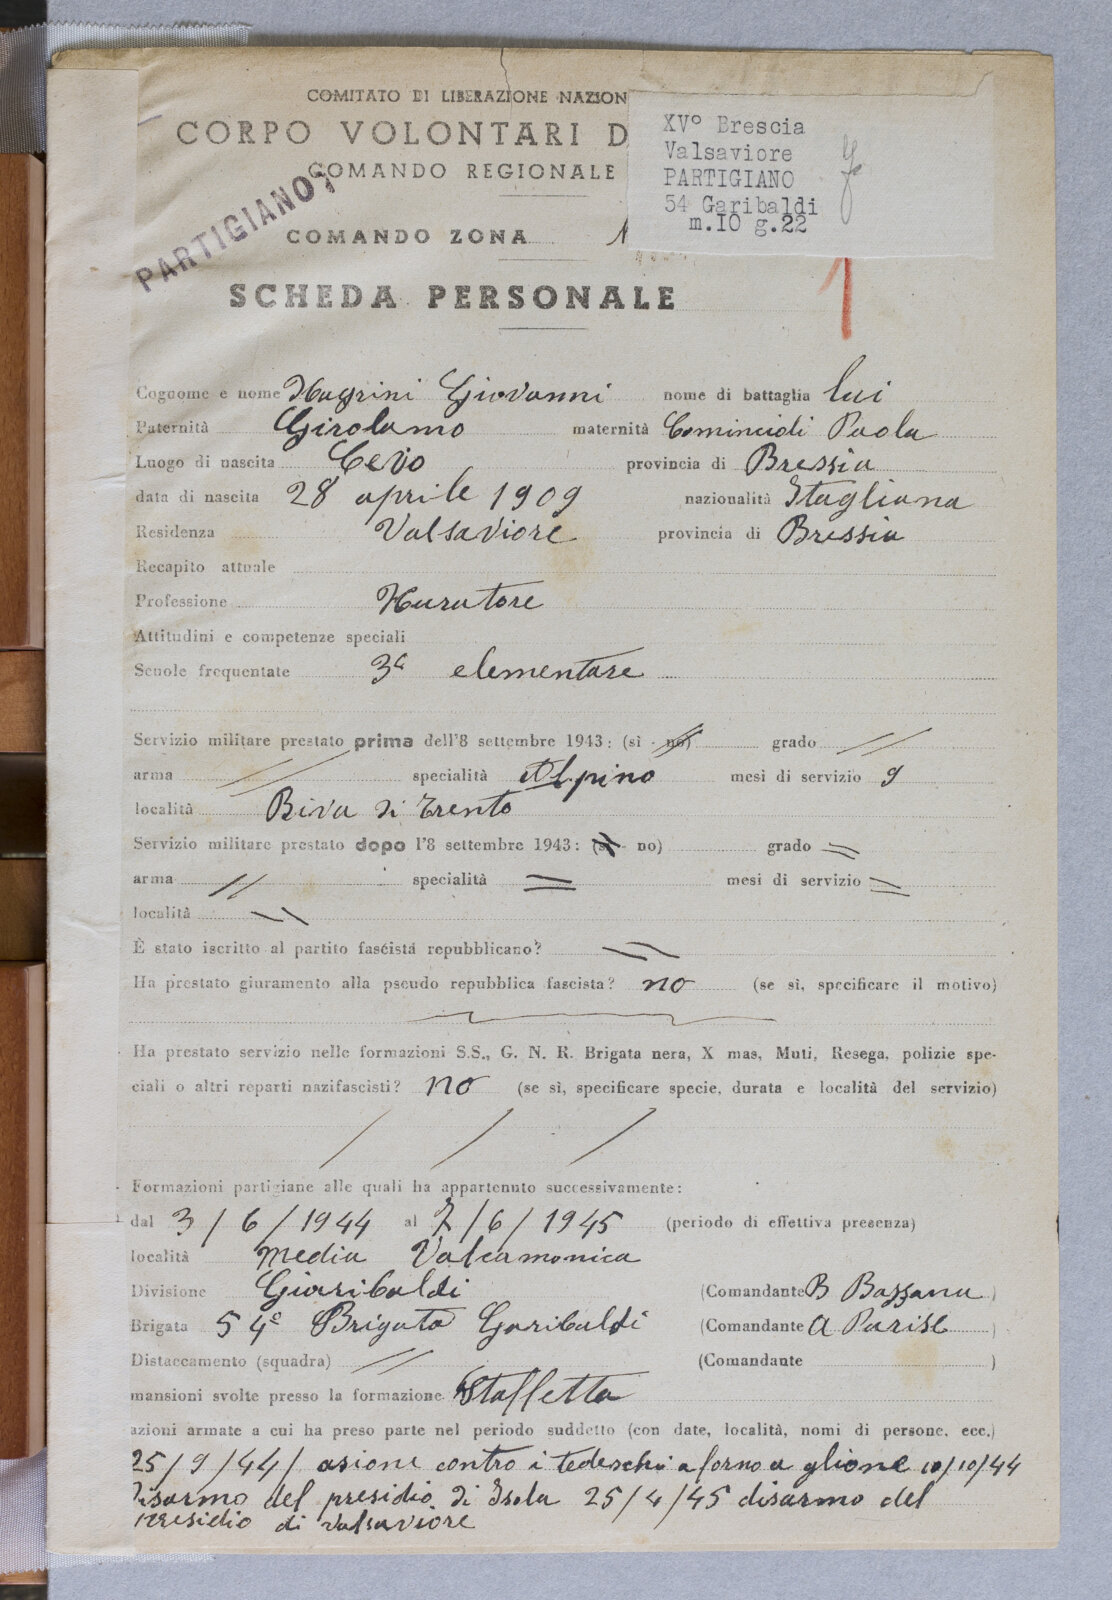 COMITATO DI LIBERAZIONE NAZION
CORPO VOLONTARI D
COMANDO REGIONALE
XV° Brescia
Valsaviore
PARTIGIANO
54 Garibaldi
m.IO g.22
PARTIGIANO
COMANDO ZONA
SCHEDA PERSONALE
1
Cognome e nome Magrini Giovanni nome di battaglia lui
Paternità Girolamo maternità Comincioli Paola
Luogo di nascita Cevo provincia di Bressia
data di nascita 28 aprile 1909 nazionalità Itagliana
Residenza Valsaviore provincia di Bressia
Recapito attuale
Professione Muratore
Attitudini e competenze speciali
Scuole frequentate 3a elementare
Servizio militare prestato prima dell'8 settembre 1943: (sì - no) grado //
arma // specialità Alpino mesi di servizio 9
località Riva di Trento
Servizio militare prestato dopo l'8 settembre 1943: (sì - no) grado =
arma // specialità = mesi di servizio =
località =
È stato iscritto al partito fascista repubblicano? =
Ha prestato giuramento alla pseudo repubblica fascista? no (se sì, specificare il motivo)
Ha prestato servizio nelle formazioni S.S., G. N. R. Brigata nera, X mas, Muti, Resega, polizie spe-
ciali o altri reparti nazifascisti? no (se sì, specificare specie, durata e località del servizio)
/ / /
Formazioni partigiane alle quali ha appartenuto successivamente:
dal 3/6/1944 al 7/6/1945 (periodo di effettiva presenza)
località Media Valcamonica
Divisione Giaribaldi (Comandante B Bazzana)
Brigata 54° Brigata Garibaldi (Comandante A Parise)
Distaccamento (squadra) // (Comandante )
mansioni svolte presso la formazione Staffetta
azioni armate a cui ha preso parte nel periodo suddetto (con date, località, nomi di persone, ecc.)
25/9/44/ asione contro i tedeschi a forno a glione 10/10/44
disarmo del presidio di Isola 25/4/45 disarmo del
presidio di Valsaviore